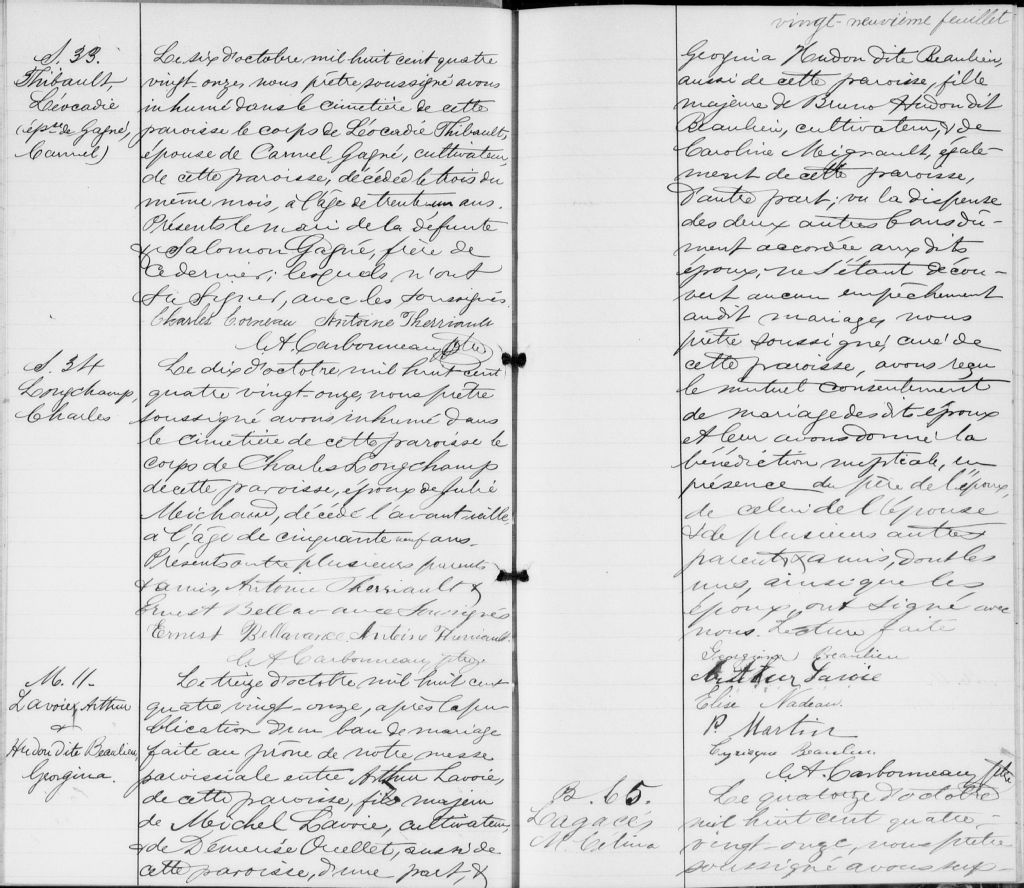 S. 33.
Thibault,
Léocadie
(épse de Gagné,
Carmel)
Le six d'octobre mil huit cent quatre
vingt-onze, nous prêtre soussigné avons
inhumé dans le cimetière de cette
paroisse le corps de Léocadie Thibault,
épouse de Carmel Gagné, cultivateur,
de cette paroisse, décédée le trois du
même mois, à l'âge de trente-un ans.
Présents le mari de la défunte
& Salomon Gagné, frère de
ce dernier; lesquels n'ont
su signer, avec les soussignés.
Charles Corneau Antoine Therriault
C. A. Carbonneau, ptre
S. 34
Longchamp,
Charles
Le dix d'octobre mil huit cent
quatre vingt-onze, nous prêtre
soussigné avons inhumé dans
le cimetière de cette paroisse le
corps de Charles Longchamp
de cette paroisse, époux de Julie
Meichaud, décédé l'avant-veille,
à l'âge de cinquante neuf ans.
Présents outre plusieurs parents
& amis, Antoine Therriault &
Ernest Bellavance soussignés
Ernest Bellavance, Antoine Therriault.
C. A. Carbonneau, ptre
M. 11.
Lavoie, Arthur
&
Hudon dite Beaulieu,
Georgina.
Le treize d'octobre mil huit cent
quatre vingt-onze, après la pu-
blication d'un ban de mariage
faite au prône de notre messe
paroissiale entre Arthur Lavoie,
de cette paroisse, fils majeur
de Meichel Lavoie, cultivateur,
& de Démerise Ouellet, aussi de
cette paroisse, d'une part, &
vingt-neuvième feuillet
Georgina Hudon dite Beaulieu,
aussi de cette paroisse, fille
majeure de Bruno Hudon dit
Beaulieu, cultivateur, & de
Caroline Meignault, égale-
ment de cette paroisse,
d'autre part; vu la dispense
des deux autres bans dû-
ment accordée aux dits
époux; ne s'étant décou-
vert aucun empêchement
au dit mariage, nous
prêtre soussigné, curé de
cette paroisse, avons reçu
le mutuel consentement
de mariage des dits époux
et leur avons donné la
bénédiction nuptiale, en
présence du père de l'époux,
de celui de l'épouse
& de plusieurs autres
parents & amis, dont les
uns, ainsi que les
époux, ont signé avec
nous. Lecture faite
Georgina Beaulieu
Arthur Lavoie
Elise Nadeau.
P. Martin
Cyriaque Beaulieu.
C. A. Carbonneau, ptre
B. 65.
Lagacé,
M. Célina
Le quatorze d'octobre
mil huit cent quatre-
vingt-onze, nous prêtre
soussigné avons sup-